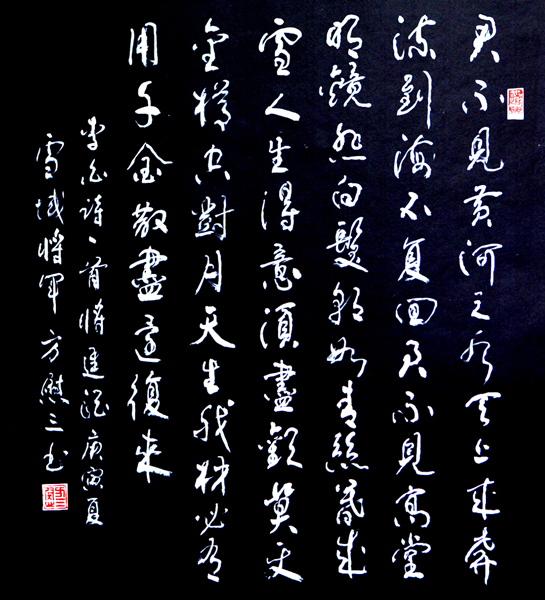 君不見黄河之水天上來奔
流到海不复回君不見高堂
明鏡悲白髮朝如青絲暮成
雪人生得意須盡歡莫使
金樽空對月天生我材必有
用千金散盡還復來
李白詩一首將進酒庚寅夏
雪域將軍方三书